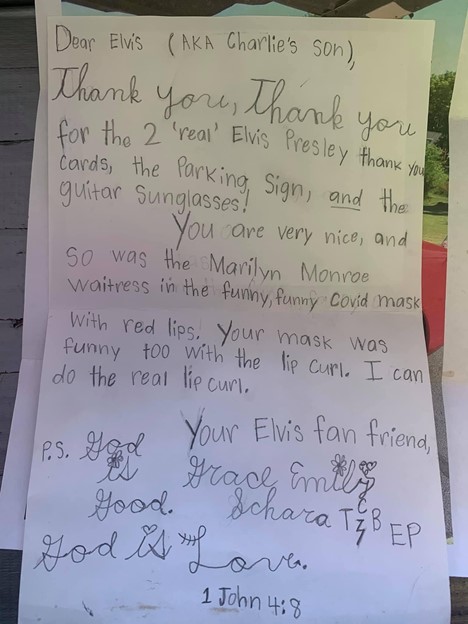 Dear Elvis (AKA Charlie's son),
Thank you, Thank you
for the 2 'real' Elvis Presley thank you
cards, the Parking Sign, and the
guitar Sunglasses!
You are very nice, and
So was the Marilyn Monroe
waitress in the funny, funny Covid mask
With red lips. Your mask was
funny too with the lip curl. I can
do the real lip curl.
Your Elvis fan friend,
P.S. God
is
Good.
Grace Emily
Schara TCB EP
God is Love.
1 John 4:8